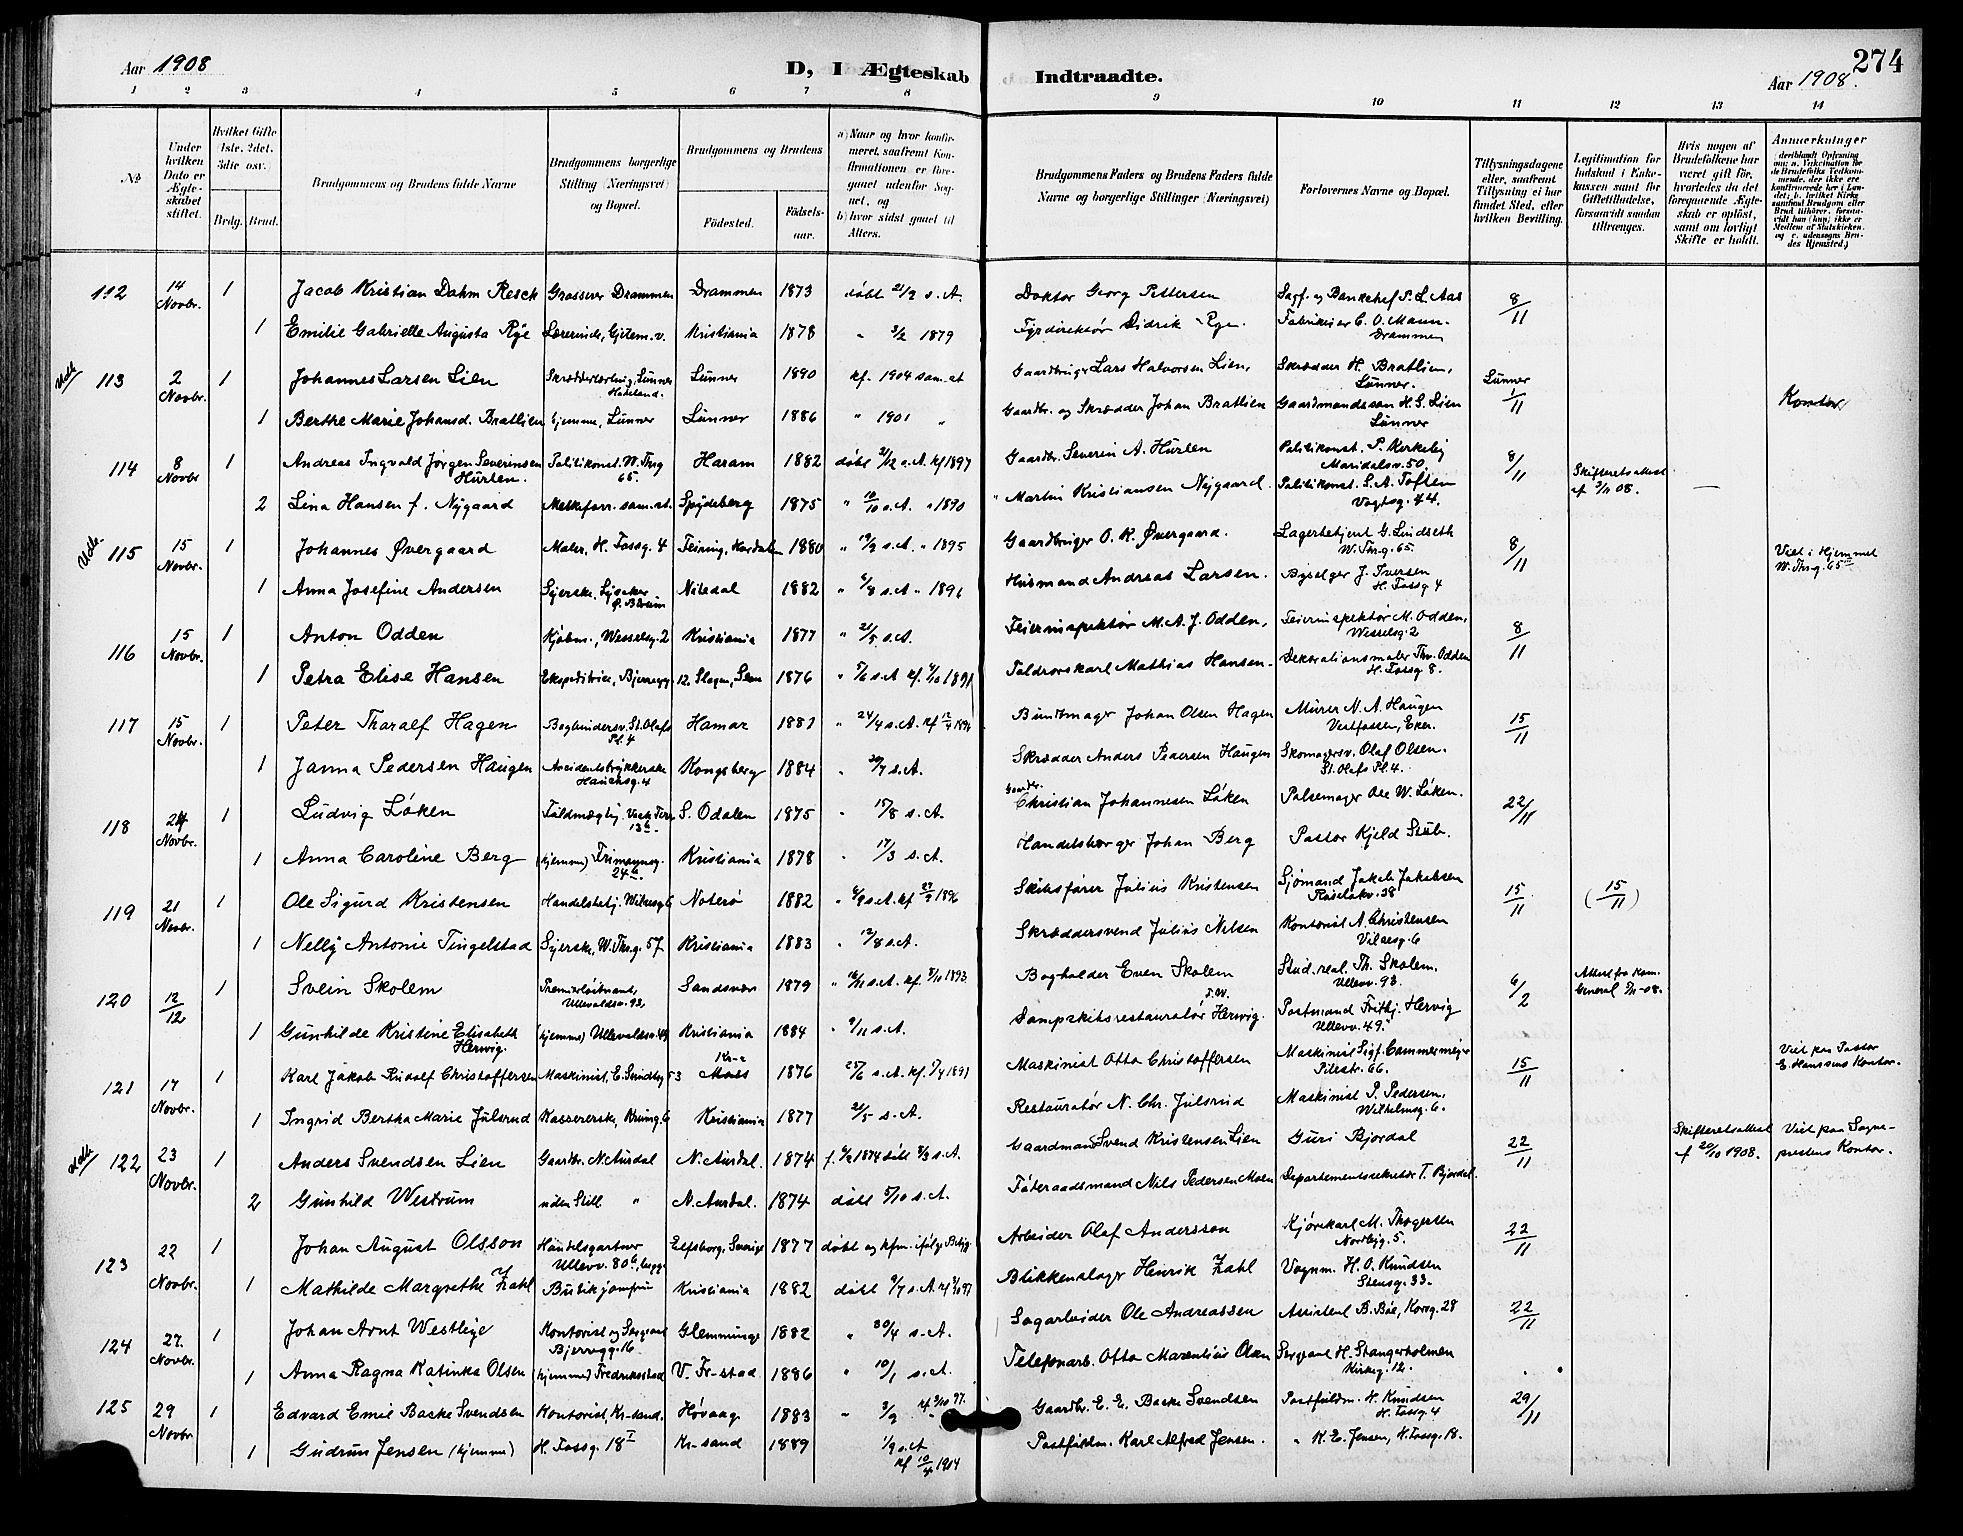 Aar 1908
D, I Ægteskab Indtraadte.
Aar 1908.
274
1 2 3 4 5 6 7 8 9 10 11 12 13 14
No
Under hvilken Dato er Ægteskabet stiftet.
Hvilket Gifte (1ste, 2det, 3die osv.)
Brdg. Brud.
Brudgommens og Brudens fulde Navne
Brudgommens borgerlige Stilling (Næringsvei) og Bopæl.
Brudgommens og Brudens
Fødested. Fødselsaar.
a) Naar og hvor konfirmeret, saafremt Konfirmationen er foregaaet udenfor Sognet, og
b) hvor sidst gaaet til Alters.
Brudgommens Faders og Brudens Faders fulde Navne og borgerlige Stillinger (Næringsvei)
Forlovernes Navne og Bopæl.
Tillysningsdagene eller, saafremt Tillysning ei har fundet Sted, efter hvilken Bevilling.
Legitimation for Indskud i Enkekassen samt for Giftetilladelse, forsaavidt saadan tiltrænges.
Hvis nogen af Brudefolkene har været gift før, hvorledes da det foregaaende Ægteskab er opløst, samt om lovligt Skifte er holdt.
Anmærkninger
112 14 Novbr. 1 Jacob Kristian Dahm Resch Grosserer Drammen Drammen 1873 døbt 21/2 s. A. Doktor Georg Pettersen Sagf. og Bankchef P. L. Aas 8/11
1 Emilie Gabrielle Augusta Rye Lærerinde, Kristiania 1878 " 3/2 1879 Fyrdirektør Didrik Rye. Fabrikeier C. O. Mann. Drammen
Udb. 113 2 Novbr. 1 Johannes Larsen Lien Skrædderlærling, Lunner Hadeland. Lunner 1890 kf. 1904 sam. st Gaardbruger Lars Halvorsen Lien, Skrædder H. Bratlien, Lunner. Lunner 1/11 Kontor
1 Berthe Marie Johansd. Bratlien hjemme, Lunner Lunner 1886 " 1901 " Gaardbr. og Skrædder Johan Bratlien Gaardmandssøn H. S. Lien Lunner
114 8 Novbr 1 Andreas Ingvald Jørgen Severinsen Hurlen. Politikonst. W. Thrg 65. Haram 1882 døbt 3/12 s. A. kf 1897 Gaardbr. Severin A. Hurlen Politikonst. P. Kirkeby Maridalsv. 50. 8/11 Skifteretsattest af 3/11 08. —
2 Lina Hansen f. Nygaard Melkeforr. sam. st. Spydeberg 1875 " 10/10 s. A. " 1890 " Martin Kristiansen Nygaard. Politikonst. S. A. Toften Vogtsg. 44.
Udb. 115 15 Novbr. 1 Johannes Øvergaard Maler, H. Fossg. 4 Feiring, Hurdalen 1880 " 19/9 s. A. " 1895 Gaardbruger O. K. Øvergaard. Lagerbetjent G. Lindseth W. Thrg. 65. 8/11 Viet i Hjemmet W. Thrg. 65
1 Anna Josefine Andersen Syerske, Lysaker Nitedal 1882 " 6/8 s. A. " 1896 Husmand Andreas Larsen. Byselger J. Iversen H. Fossg 4
116 15 Novbr. 1 Anton Odden Kjøbm., Wesselsg. 2 Kristiania 1877 " 21/5 s. A. Feierinspektør M. A. J. Odden, Feierinspektør M. Odden, Wesselsg. 2 8/11
1 Petra Elise Hansen Ekspeditrice, Bjerregg. 12. Slagen, Sem 1876 " 5/6 s. A kf. 4/10 1891 Toldrorskarl Mathias Hansen. Dekorationsmaler Thv. Odden H. Fossg 8.
117 15 Novbr. 1 Peter Tharalf Hagen Bogbindersv. St. Olafs Pl. 4 Hamar 1881 " 24/4 s. A. kf 12/4 1896 Buntmager Johan Olsen Hagen Murer N. A. Haugen Vestfossen, Eker. 15/11
1 Janna Pedersen Haugen Accidentstrykkerske Hauchsg. 4 Kongsberg 1884 " 20/7 s. A. Skrædder Anders Pedersen Haugen Skomagersv. Olaf Olsen. St. Olafs Pl. 4.
118 24 Novbr. 1 Ludvig Løken Fuldmægtig, S. Odalen 1875 " 15/8 s. A. Gaardbr. Christian Johannesen Løken Pølsemager Ole W. Løken. 22/11
1 Anna Caroline Berg (hjemme) Frimannsg. 24 Kristiania 1878 " 17/3 s. A. Handelsborger Johan Berg Pastor Kjeld Stub.
119 21 Novbr. 1 Ole Sigurd Kristensen Handelsbetj. Vibesg 6 Noterø 1882 " 6/9 s. A. kf 27/9 1896 Skibsfører Julius Kristensen Sjømand Jakob Jakobsen 38 15/11 (15/11)
1 Nelly Antonie Tingelstad Syerske, W. Thrg. 57 Kristiania 1883 " 12/8 s. A. Skræddersvend Julius Nilsen Kontorist A. Christensen Vibesg. 6
120 12/12 1 Svein Skolem Premierløitnant, Ullevoldsv. 93 Sandsvær 1879 " 16/11 s. A. kf. 8/10 1893 Bogholder Even Skolem Stud. real. Th. Skolem. Ullevv. 93. 6/2 Attest fra Kom. General 5/11-08.
1 Gunhilde Kristine Elisabeth Herwig. (hjemme) Ullevoldsv. 49 Kristiania 1884 " 9/11 s. A. Dampskibsrestauratør F. W. Herwig. Postmand Fritbj. Herwig Ullevv. 49.
121 17 Novbr. 1 Karl Jakob Rudolf Christoffersen Maskinist, E. Sundtsg 53 Kr-a Moss 1876 25/6 s. A. kf. 5/4 1891 Maskinist Otto Christoffersen Maskinist Sigf. Cammermeyer Pilestr. 66. 15/11 Viet paa Pastor E. Hanssens Kontor.
1 Ingrid Bertha Marie Julsrud Kassererske, Krumg. 6 Kristiania 1877 21/5 s. A. Restauratør N. Chr. Julsrud Maskinist P. Pedersen, Wilhelmsg. 6.
Udb. 122 23 Novbr. 1 Anders Svendsen Lien Gaardbr. N. Aurdal N. Aurdal. 1874 f. 1/2 1874 døbt 8/3 s. A. Gaardmand Svend Kristensen Lien Guri Bjordal 22/11 Skifteretsattest af 20/10 1908. Viet paa Sogneprestens Kontor.
2 Gunhild Westrum uden Still " N. Aurdal. 1874 døbt 5/10 s. A. Føderaadsmand Nils Pedersen Moen Departementssekretær T. Bjordal.
123 22 Novbr. 1 Johan August Olsson Handelsgartner Ullevv. 80 b, bygg Elfsborg, Sverige 1877 døbt og kfm. ifølge Bevg. Arbeider Olaf Andersson Kjørekarl M. Thogersen Nordbyg. 5. 22/11
1 Mathilde Margrethe Zahl Butikjomfru Kristiania 1882 døbt 9/7 s. A. kf 3/10 97 Blikkenslager Henrik Zahl Vognm. H. O. Knudsen Stensg. 33.
124 27. Novbr. 1 Johan Arnt Westbye Kontorist og Sergeant Bjerregg. 16 Glemminge 1882 " 30/4 s. A. Sagarbeider Ole Andreassen Assistent B. Bøe, Korsg. 28 22/11
1 Anna Ragna Katinka Olsen (hjemme) Fredriksstad V. Fr-stad 1886 " 10/1 s. A. Telefonarb. Otto Marentius Olsen Sergeant H. Stangerholmen Kirkeg. 12.
125 29 Novbr 1 Edvard Emil Baske Svendsen Kontorist, Kr-sand. Høvaag 1883 " 3/9 kf 3/10 97. Gaardbr. E. E. Baske Svendsen Postfuldm. K. Knudsen H. Fossg. 4 29/11
1 Gudrun Jensen (hjemme) H. Fossg. 18 I Kr-sand 1889 1/9 s. A kf 10/4 1904 Postfuldm. Karl Alfred Jensen. " K. E. Jensen, H. Fossg. 18.